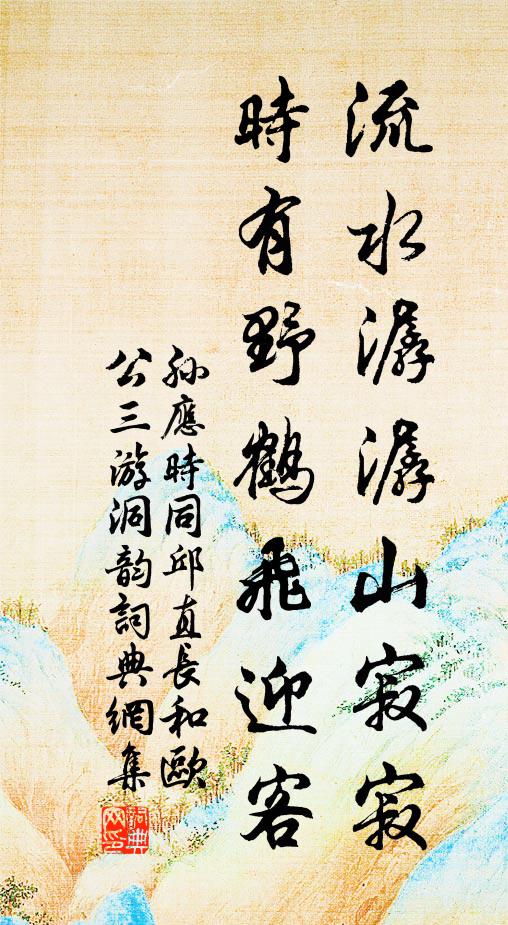 流水潺潺山寂寂
時有野鶴飛迎客
孙應時同邱直長和歐
公三游洞韵詞典網集
詞典網印